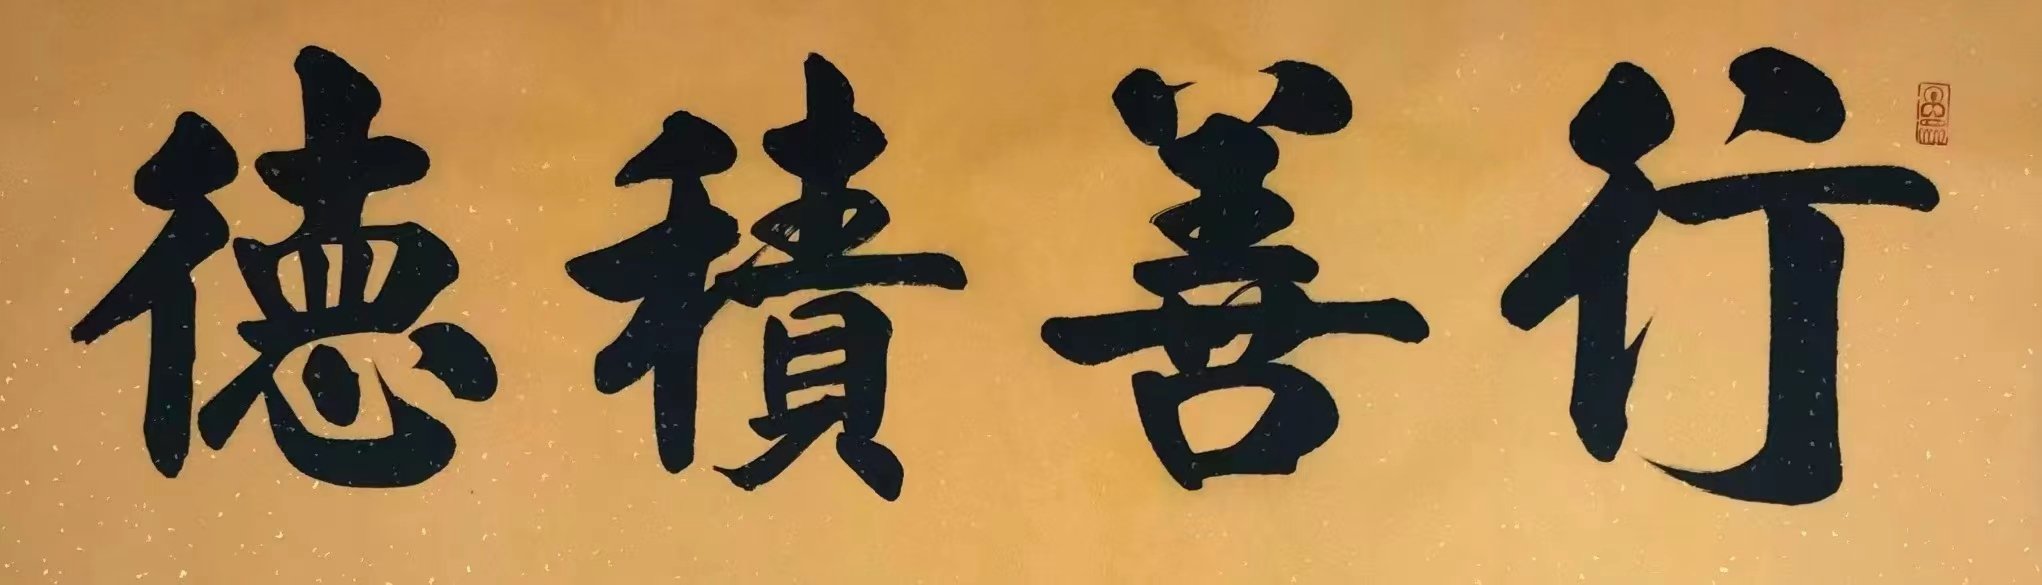 行善積德